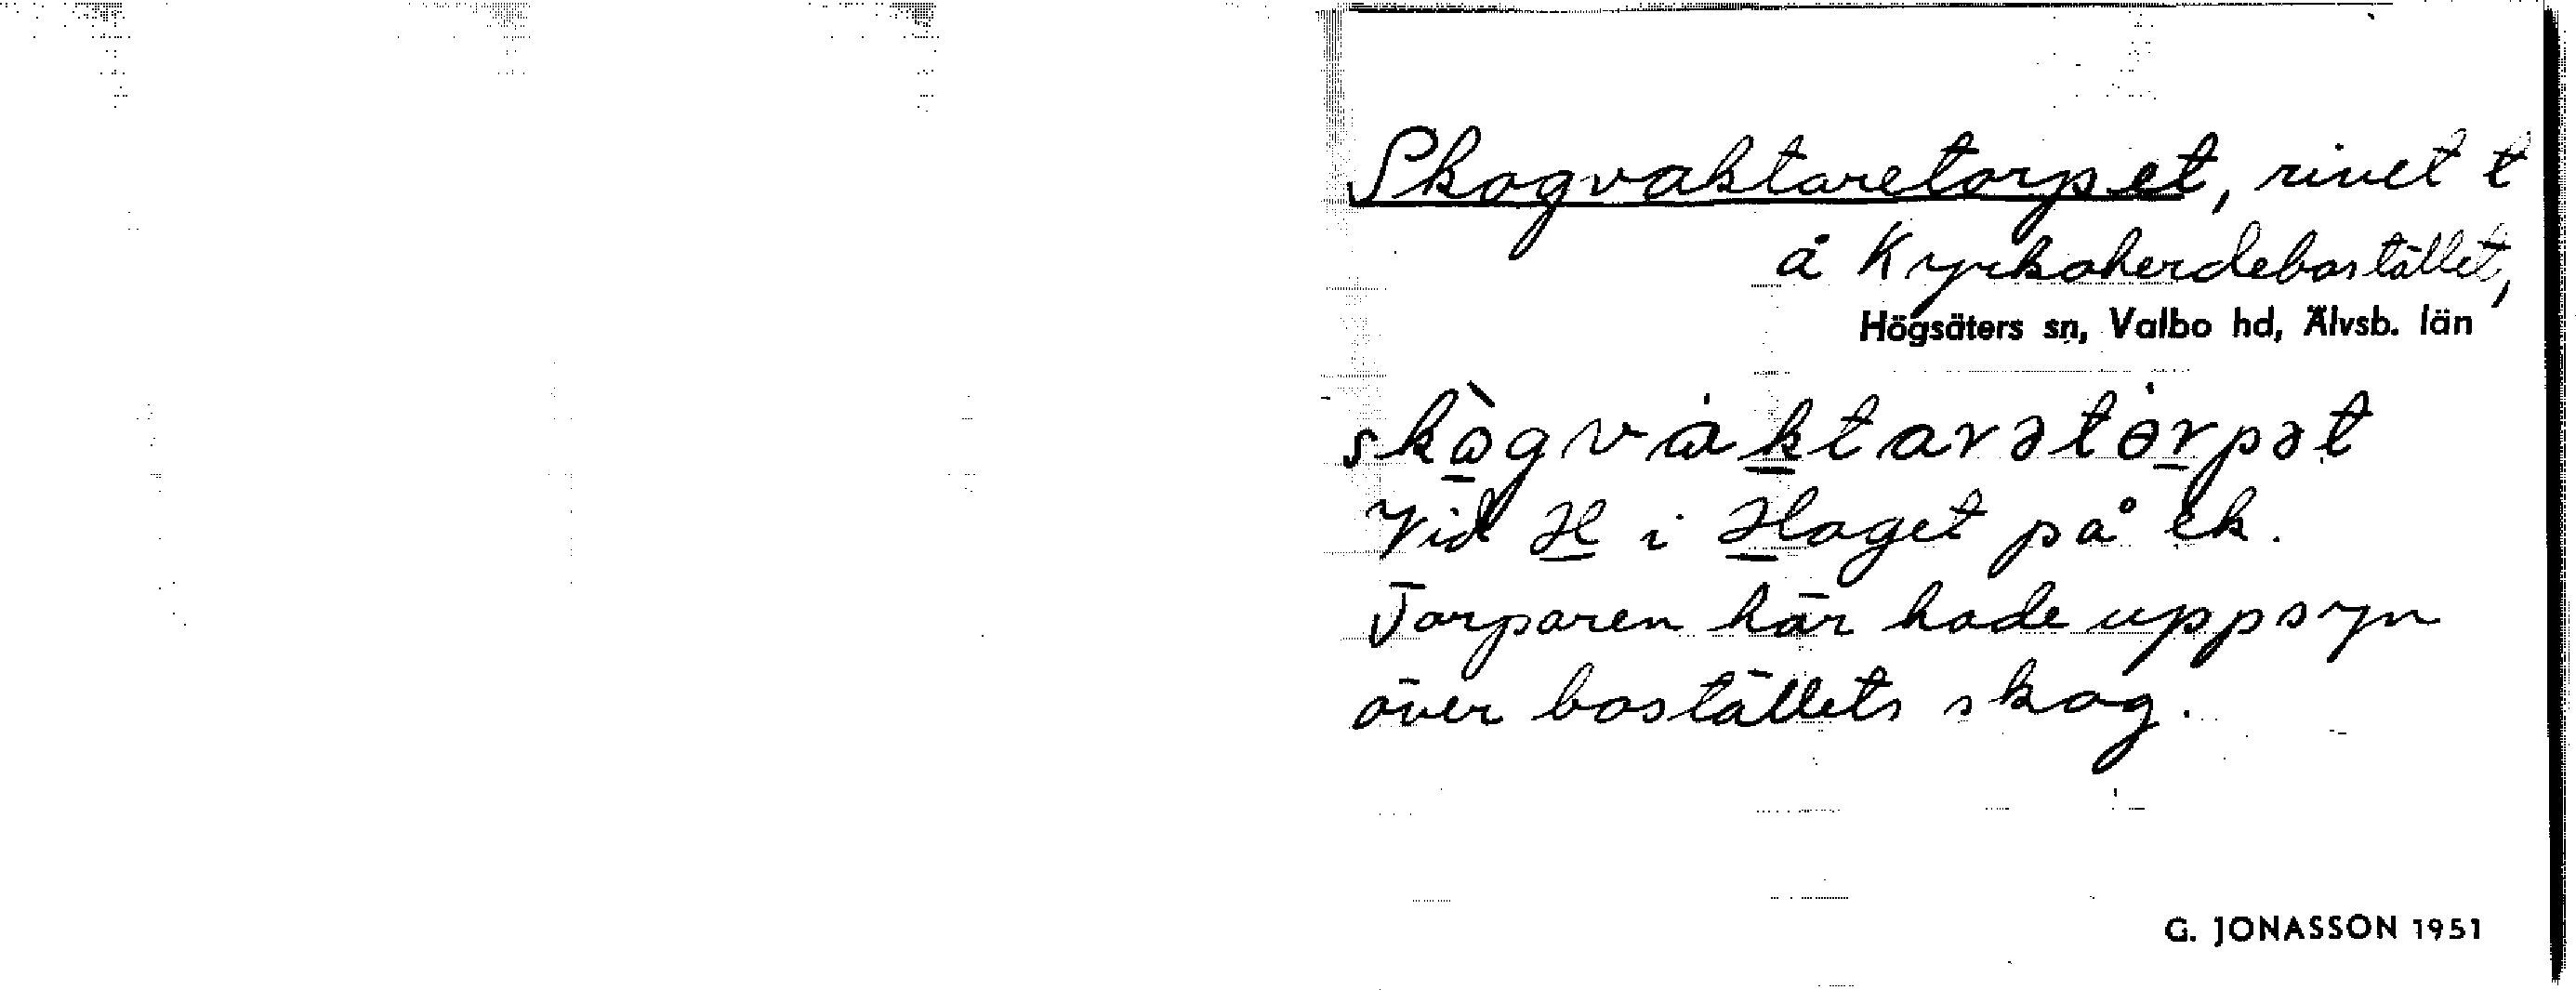 Skogvaktaretorpet, rivet t
å Kyrkoherdebostället,
Högsäters sn, Valbo hd, Älvsb. län
skògvaktarətȯrpət
Vid H i Haget på ek.
Torparen här hade uppsyn
över boställets skog.
G. JONASSON 1951